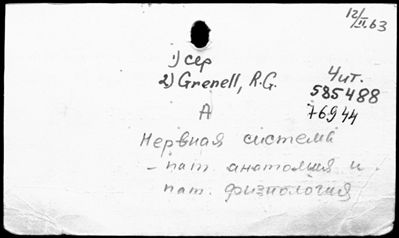 12/II.63
1) сер
2) Grenell, R.G.
Чит.
585488
А
76944
Нервная система
- пат. анатомия и
пат. физиология